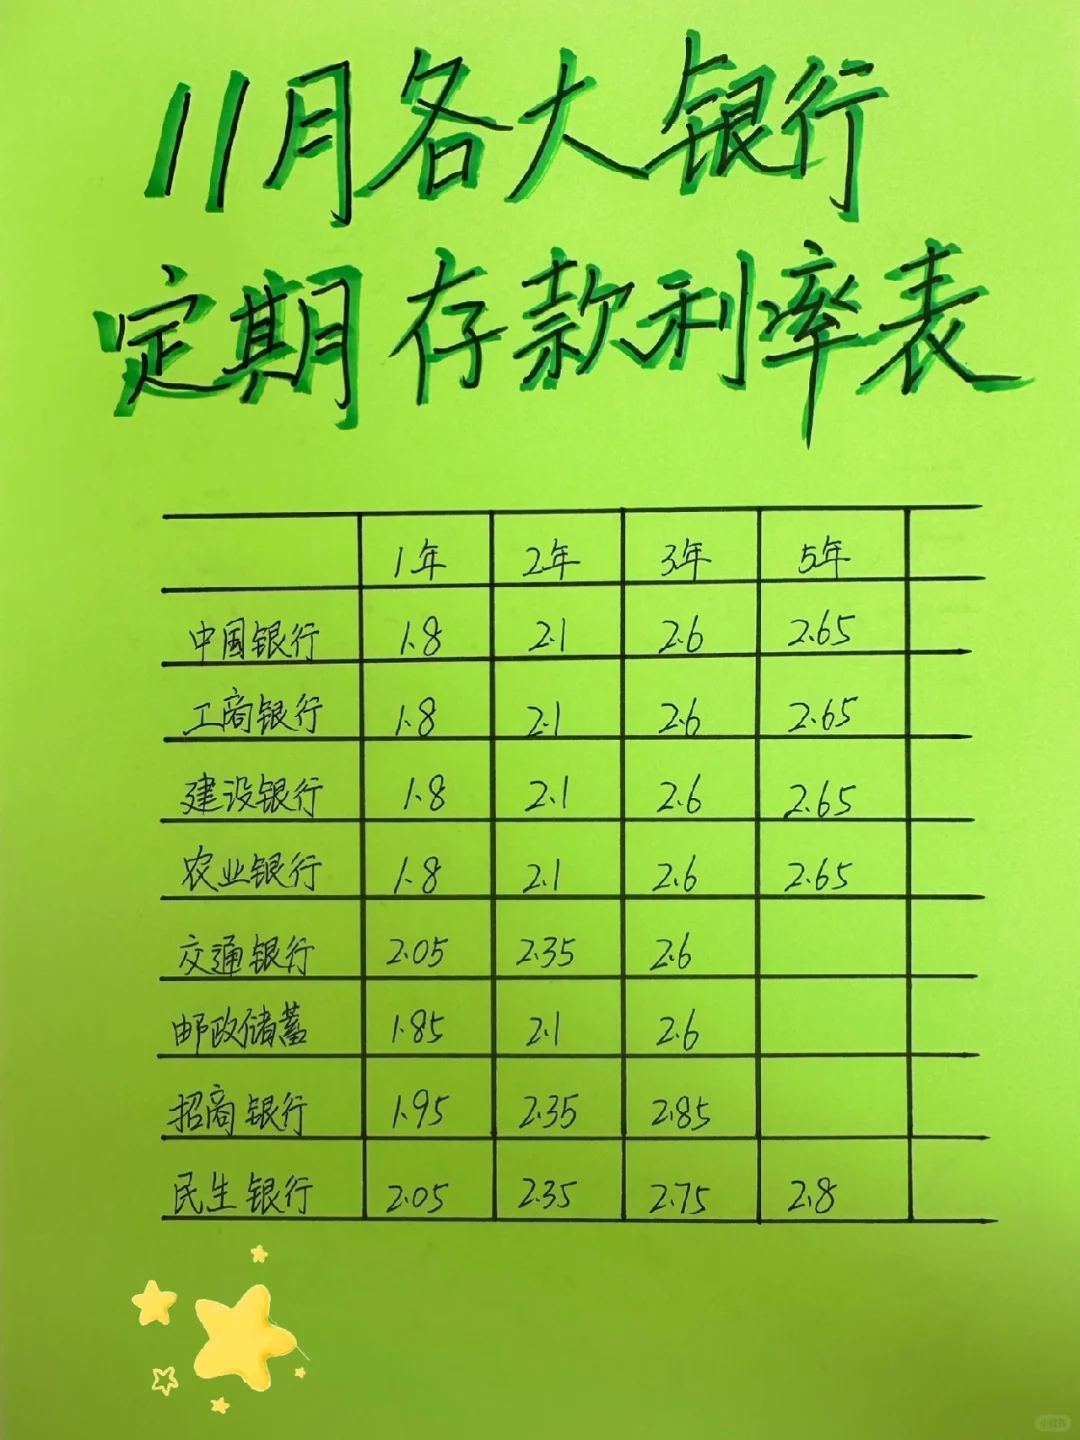 11月各大银行
定期存款利率表
1年 2年 3年 5年
中国银行 1.8 2.1 2.6 2.65
工商银行 1.8 2.1 2.6 2.65
建设银行 1.8 2.1 2.6 2.65
农业银行 1.8 2.1 2.6 2.65
交通银行 2.05 2.35 2.6
邮政储蓄 1.85 2.1 2.6
招商银行 1.95 2.35 2.85
民生银行 2.05 2.35 2.75 2.8